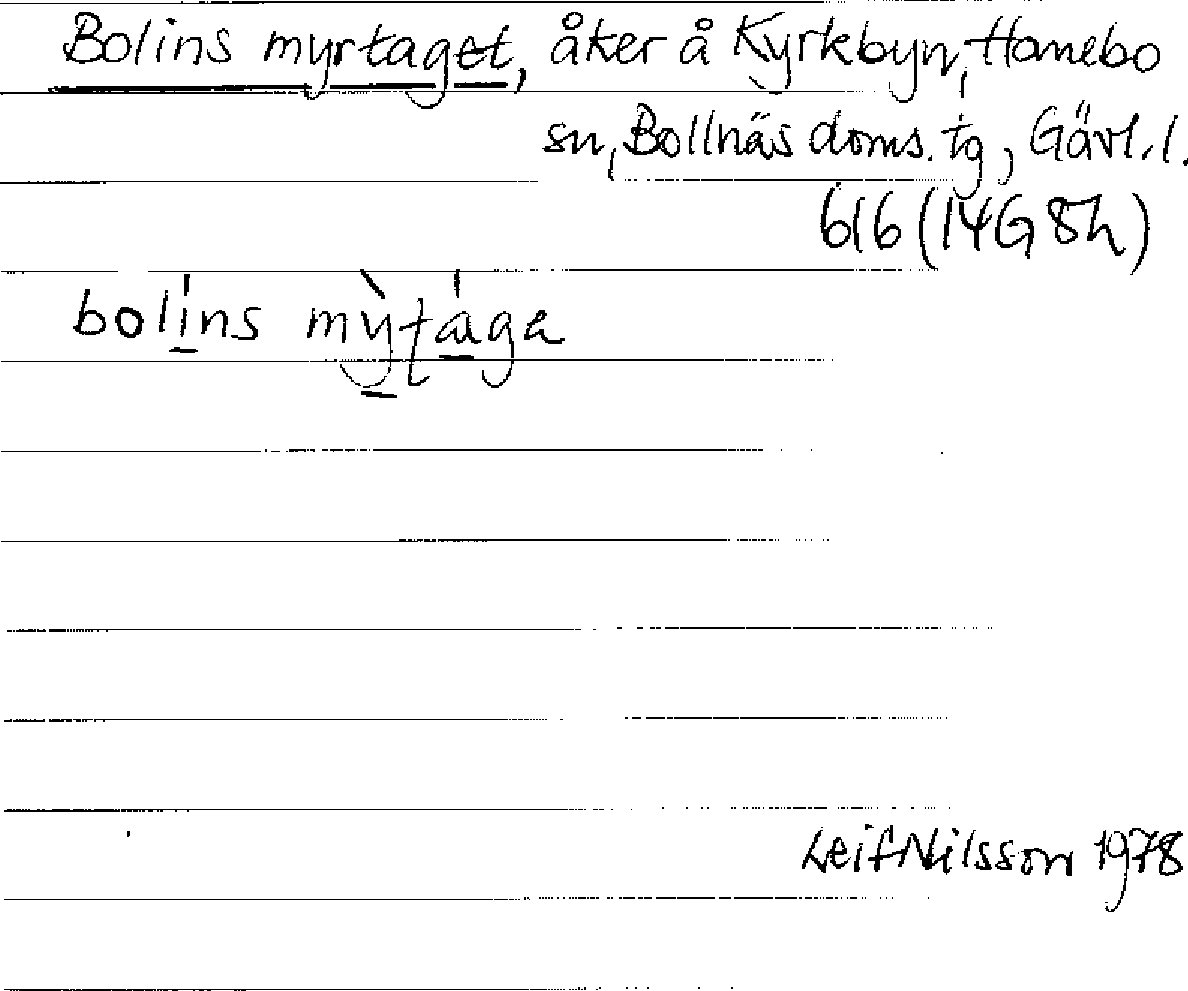 Bolins myrtaget, åker å Kyrkbyn, Hanebo
sn, Bollnäs doms. tg, Gävl. l.
616 (14G 8h)
bolíns mỳʈága
Leif Nilsson 1978